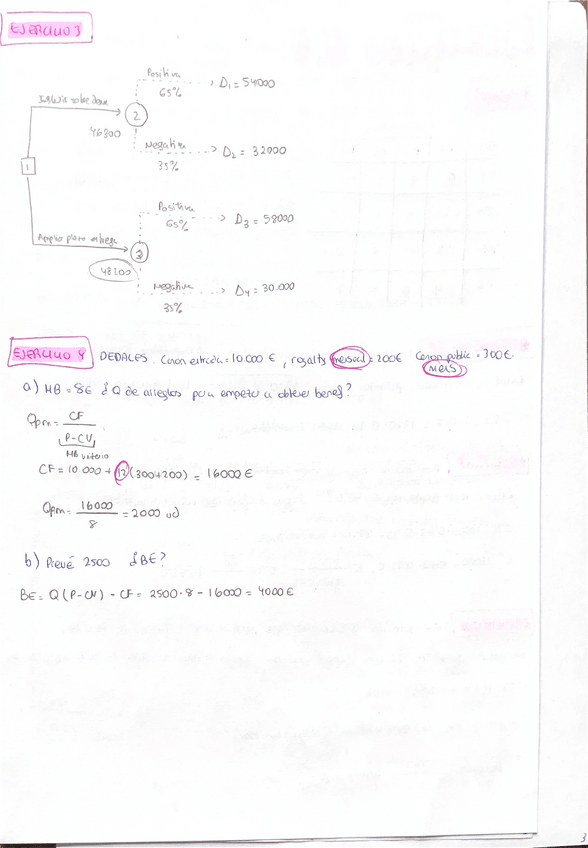 EJERCICIO 3
Positiva
65%
D₁ = 54000
2
46300
Negativa
35%
D₂ = 32000
1
Positiva
65%
D₃ = 58000
Ampliar plazo entrega
3
48200
Negativa
35%
D₄ = 30.000
EJERCICIO 4 DEDALES. Canon entrada = 10.000 €, royalty mensual = 200€ Canon public = 300€.
(MES)
a) MB = 8€ ¿Q de arreglos para empezar a obtener benef?
Qpm = CF
P-CV
MB unitario
CF = 10.000 + 12 (300+200) = 16000 €
Qpm = 16000
8
= 2000 ud
b) Prevé 2500 ¿BE?
BE = Q (P-CV) - CF = 2500·8 - 16000 = 4000 €
3